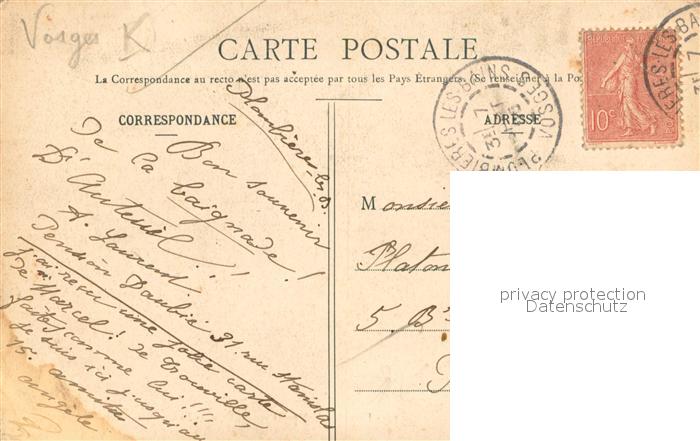 Vosges K
CARTE POSTALE
La Correspondance au recto n'est pas acceptée par tous les Pays Étrangers. (Se renseigner à la Po
CORRESPONDANCE
ADRESSE
10c
PLOMBIÈRES-LES-BAINS VOSGES
Plombières-les-B.
Bon souvenir
De la baignade!
D'Auteuil!!
A. Laurent
Pension Daubié 31 rue Stanislas
j'ai reçu une jolie carte
De Marcel! de Trouville,
faites comme lui!!!
Je suis ici jusqu'au
15. amitiés
angèle
Monsie
Platon
5 Bd
privacy protection
Datenschutz